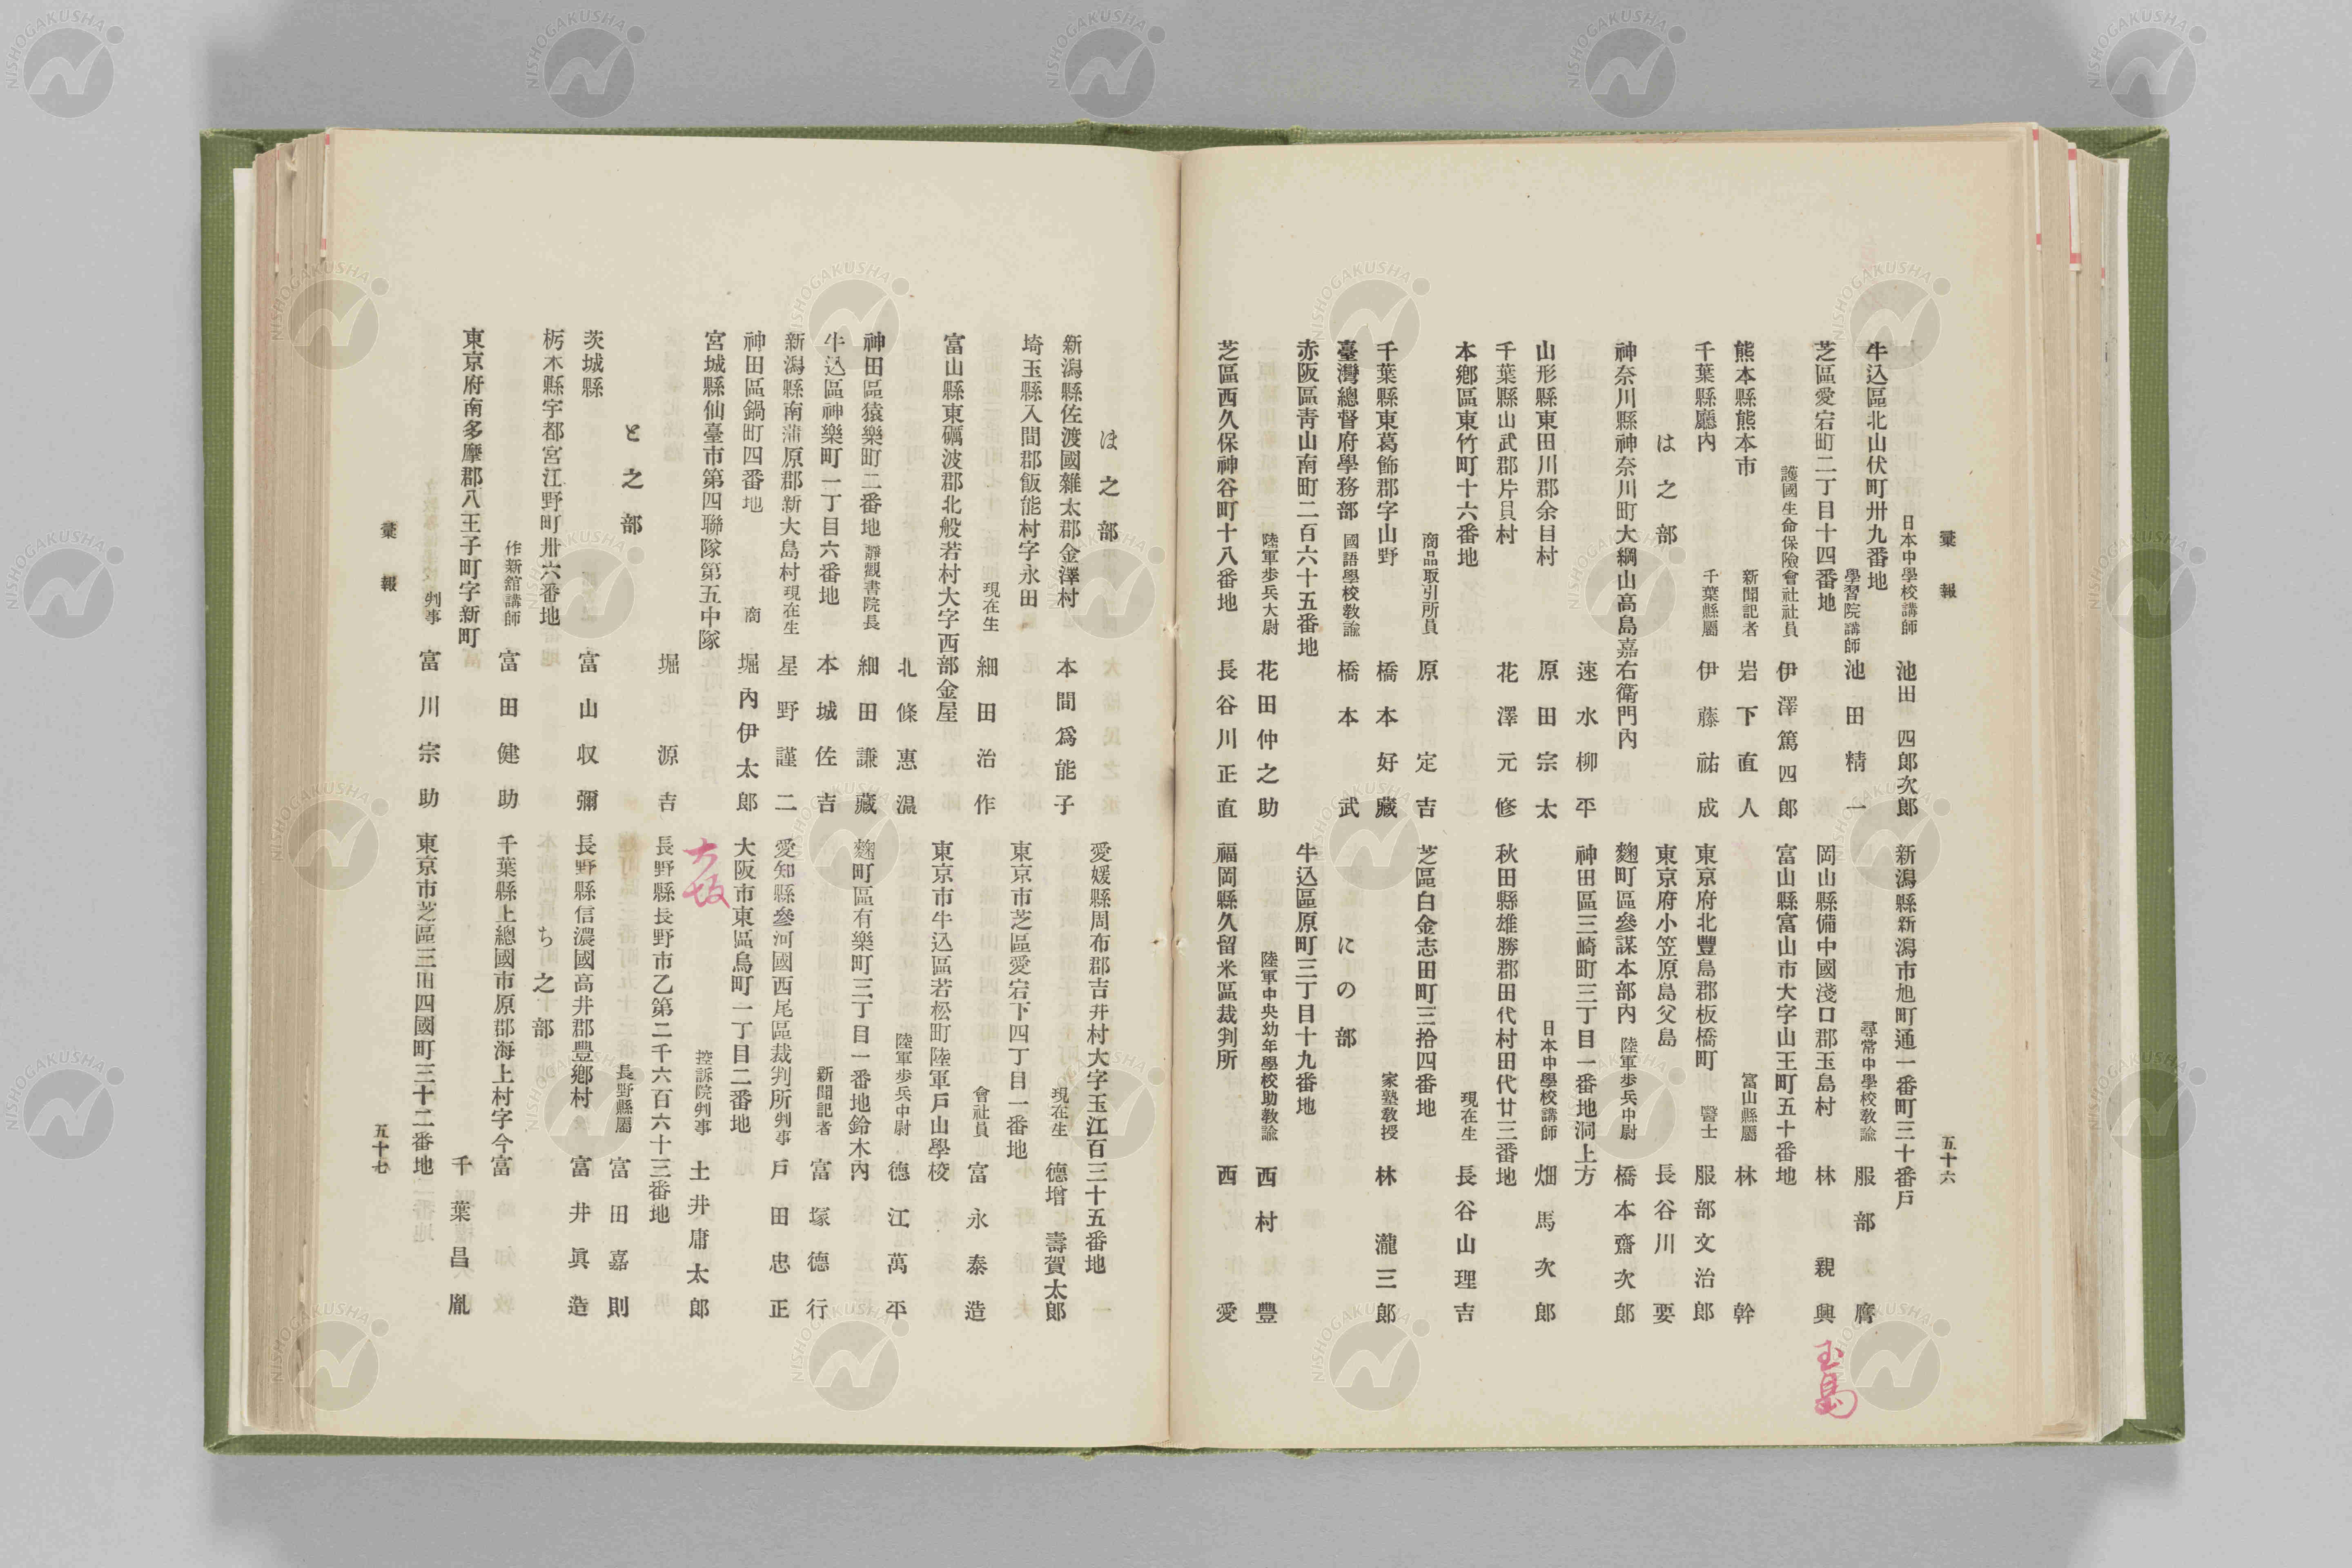 彙報
五十六
日本中學校講師 池田四郎次郎
牛込區北山伏町卅九番地
學習院講師 池田精一
芝區愛宕町二丁目十四番地
護國生命保險會社社員 伊澤篤四郎
熊本縣熊本市 新聞記者 岩下直人
千葉縣廳内 千葉縣屬 伊藤祐成
は之部
神奈川縣神奈川町大綱山高島嘉右衛門内
速水柳平
山形縣東田川郡余目村 原田宗太
千葉縣山武郡片貝村 花澤元修
本鄕區東竹町十六番地
商品取引所員 原定吉
千葉縣東葛飾郡字山野 橋本好藏
臺灣總督府學務部 國語學校敎諭 橋本武
赤阪區靑山南町二百六十五番地
陸軍步兵大尉 花田仲之助
芝區西久保神谷町十八番地 長谷川正直
新潟縣新潟市旭町通一番町三十番戸
尋常中學校敎諭 服部膺
岡山縣備中國淺口郡玉島村 林親興
玉島
富山縣富山市大字山王町五十番地
富山縣屬 林幹
東京府北豐島郡板橋町 醫士 服部文治郎
東京府小笠原島父島 長谷川要
麴町區參謀本部内 陸軍步兵中尉 橋本齋次郎
神田區三崎町三丁目一番地洞上方
日本中學校講師 畑馬次郎
秋田縣雄勝郡田代村田代廿三番地
現在生 長谷山理吉
芝區白金志田町三拾四番地
家塾敎授 林瀧三郎
にの部
牛込區原町三丁目十九番地
陸軍中央幼年學校助敎諭 西村豐
福岡縣久留米區裁判所 西愛
ほ之部
新潟縣佐渡國雜太郡金澤村 本間爲能子
埼玉縣入間郡飯能村字永田
現在生 細田治作
富山縣東礪波郡北般若村大字西部金屋
北條惠温
神田區猿樂町二番地 靜觀書院長 細田謙藏
牛込區神樂町一丁目六番地 本城佐吉
新潟縣南蒲原郡新大島村 現在生 星野謹二
神田區鍋町四番地 商 堀内伊太郎
宮城縣仙臺市第四聯隊第五中隊
堀源吉
と之部
茨城縣 富山収彌
栃木縣宇都宮江野町卅六番地
作新舘講師 富田健助
東京府南多摩郡八王子町字新町
判事 富川宗助
愛媛縣周布郡吉井村大字玉江百三十五番地
現在生 德增壽賀太郎
東京市芝區愛宕下四丁目一番地
會社員 富永泰造
東京市牛込區若松町陸軍戸山學校
陸軍步兵中尉 德江萬平
麴町區有樂町三丁目一番地鈴木内
新聞記者 富塚德行
愛知縣參河國西尾區裁判所判事 戸田忠正
大阪市東區島町一丁目二番地
大坂
控訴院判事 土井庸太郎
長野縣長野市乙第二千六百六十三番地
長野縣屬 富田嘉則
長野縣信濃國高井郡豐鄕村 富井眞造
ち之部
千葉縣上總國市原郡海上村字今富
千葉昌胤
東京市芝區三田四國町三十二番地
彙報
五十七
NISHOGAKUSHA